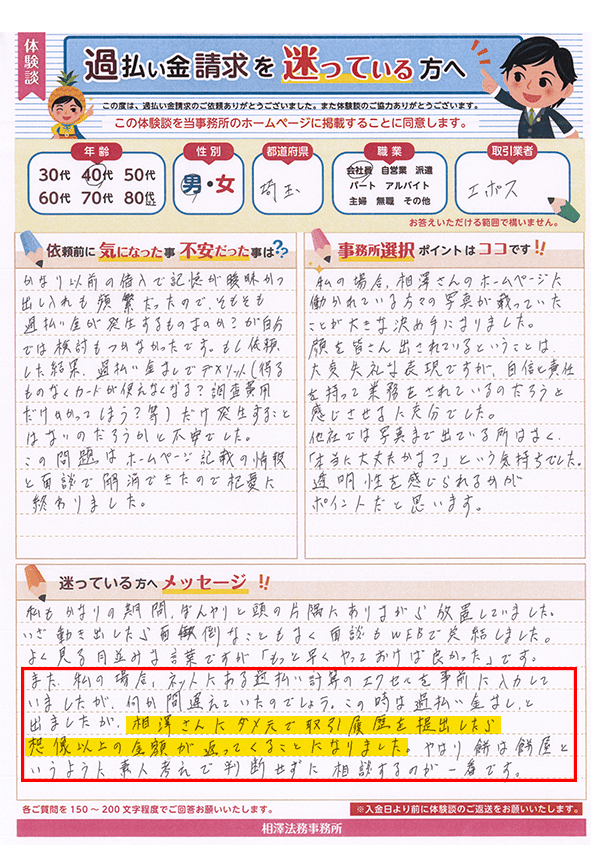 体験談
過払い金請求を迷っている方へ
この度は、過払い金請求のご依頼ありがとうございました。また体験談のご協力ありがとうございます。
この体験談を当事務所のホームページに掲載することに同意します。
年齢
30代 40代 50代
60代 70代 80代以上
性別
男・女
都道府県
埼玉
職業
会社員 自営業 派遣
パート アルバイト
主婦 無職 その他
取引業者
エポス
お答えいただける範囲で構いません。
依頼前に気になった事 不安だった事は??
かなり以前の借入で記憶が曖昧かつ
出し入れも頻繁だったので、そもそも
過払い金が発生するものなのか?が自分
では検討もつかなかったです。もし依頼
した結果、過払い金なしでデメリット(得る
ものなくカードが使えなくなる?調査費用
だけかかってしまう?等)だけ発生すること
はないのだろうかと不安でした。
この問題はホームページ記載の情報
と面談で解消できたので杞憂に
終わりました。
事務所選択ポイントはココです!!
私の場合、相澤さんのホームページに
働かれている方々の写真が載っていた
ことが大きな決め手になりました。
顔を皆さん出されているということは
大変失礼な表現ですが、自信と責任
を持って業務をされているのだろうと
感じさせるに充分でした。
他社では写真まで出ている所はなく、
「本当に大丈夫かな?」という気持ちでした。
透明性を感じられるのが
ポイントだと思います。
迷っている方へメッセージ!!
私もかなりの期間、ぼんやりと頭の片隅にありながら放置していました。
いざ動き出したら面倒なこともなく面談もWEBで完結しました。
よく見る月並みな言葉ですが「もっと早くやっておけば良かった」です。
また、私の場合、ネットにある過払い計算のエクセルを事前に入力して
いましたが、何か間違えていたのでしょう。この時は過払い金なしと
出ましたが、相澤さんにダメ元で取引履歴を提出したら
想像以上の金額が返ってくることになりました。やはり餅は餅屋と
いうように素人考えで判断せずに相談するのが一番です。
各ご質問を150〜200文字程度でご回答お願いいたします。
※入金日より前に体験談のご返送をお願いいたします。
相澤法務事務所